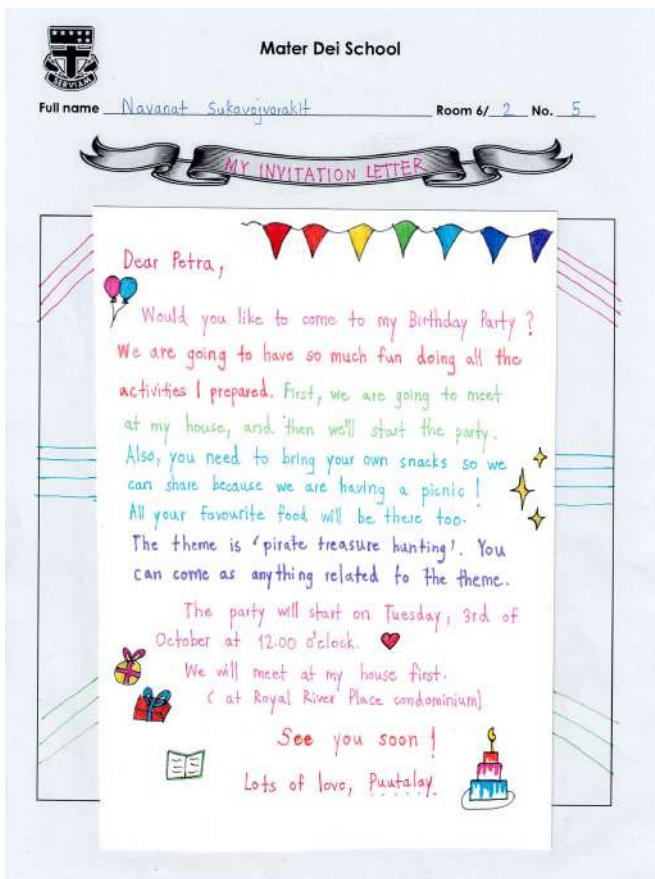 SERVIAM
Mater Dei School
Full name Navanat Sukavojvorakit Room 6/ 2 No. 5
MY INVITATION LETTER
Dear Petra,
Would you like to come to my Birthday Party ?
We are going to have so much fun doing all the
activities I prepared. First, we are going to meet
at my house, and then we'll start the party.
Also, you need to bring your own snacks so we
can share because we are having a picnic !
All your favourite food will be there too.
The theme is 'pirate treasure hunting'. You
can come as anything related to the theme.
The party will start on Tuesday, 3rd of
October at 12.00 o'clock.
We will meet at my house first.
( at Royal River Place condominium)
See you soon !
Lots of love, Puutalay